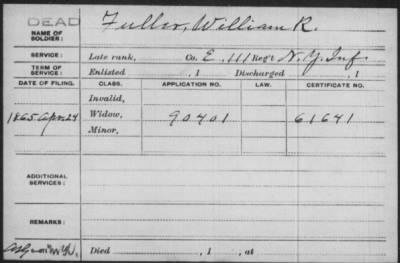 DEAD
NAME OF SOLDIER: Fuller, William R.
SERVICE: Late rank, Co. E, 111 Reg't N.Y. Inf.
TERM OF SERVICE: Enlisted , 1 Discharged , 1
DATE OF FILING. CLASS. APPLICATION NO. LAW. CERTIFICATE NO.
Invalid,
1865 Apr 24 Widow, 90401 61641
Minor,
ADDITIONAL SERVICES:
REMARKS:
Died , 1 , at